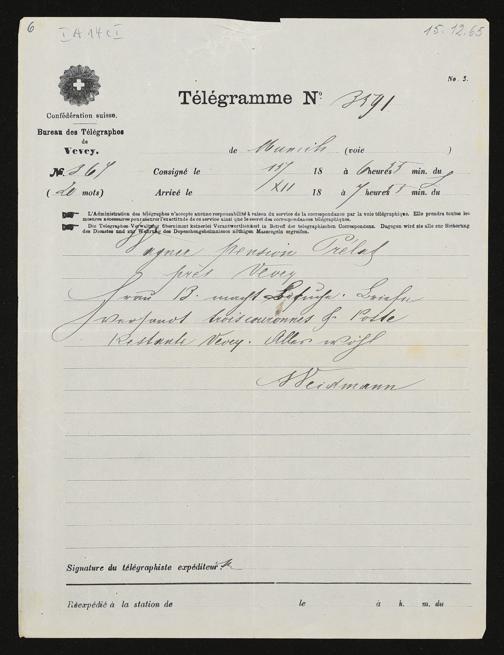 6 I A 14 c I 15.12.65
No. 3.
Confédération suisse.
Télégramme No. 3591
Bureau des Télégraphes
de
Vevey.
de Munich (voie )
No. 267 Consigné le 15/ 18 à 6 heures 35 min. du S
(20 mots) Arrivé le /XII 18 à 7 heures 5 min. du S
L'Administration des télégraphes n'accepte aucune responsabilité à raison du service de la correspondance par la voie télégraphique. Elle prendra toutes les
mesures nécessaires pour assurer l'exactitude de ce service ainsi que le secret des correspondances télégraphiques.
Die Telegraphen-Verwaltung übernimmt keinerlei Verantwortlichkeit in Betreff der telegraphischen Correspondenz. Dagegen wird sie alle zur Sicherung
des Dienstes und zur Wahrung des Depeschengeheimnisses nöthigen Massregeln ergreifen.
Wagner pension Prélat
près Vevey
Frau B. macht Besuche. Briefe
versandt trois couronnes & Poste
Restante Vevey. Alles wohl
Weidmann
Signature du télégraphiste expéditeur:
Réexpédié à la station de le à h. m. du